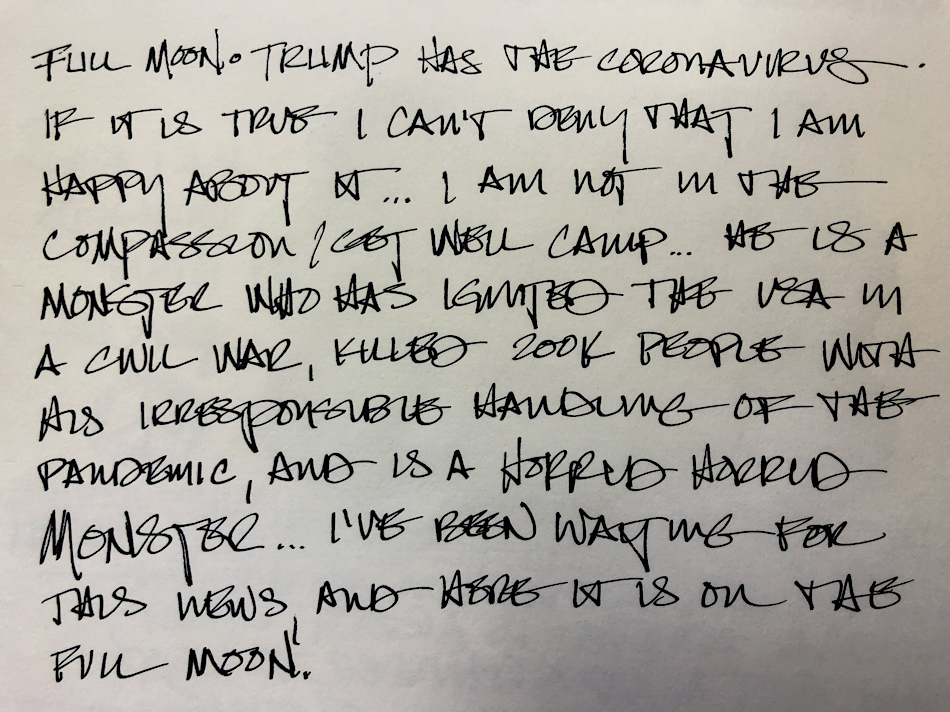 FULL MOON. TRUMP HAS THE CORONAVIRUS.
IF IT IS TRUE I CAN'T DENY THAT I AM
HAPPY ABOUT IT... I AM NOT IN THE
COMPASSION / GET WELL CAMP... HE IS A
MONSTER WHO HAS IGNITED THE USA IN
A CIVIL WAR, KILLED 200K PEOPLE WITH
HIS IRRESPONSIBLE HANDLING OF THE
PANDEMIC, AND IS A HORRID HORRID
MONSTER... I'VE BEEN WAITING FOR
THIS NEWS, AND HERE IT IS ON THE
FULL MOON!